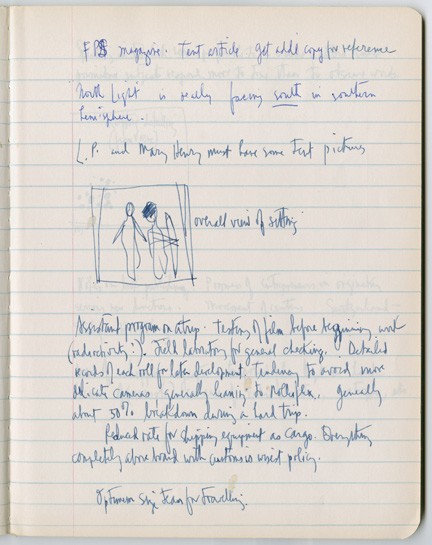 magazine. Tent article get add'l copy for reference
North Light is really facing south in southern
hemisphere.
L.P. and Mary Henry must have some text pictures
overall view of setting
Assistant program on a trip. Testing of film before beginning work
(radioactivity!). Field laboratory for general checking. Detailed
records of each roll for later development. Tendency to avoid more
delicate cameras, generally leaning to Rolleiflex, generally
about 50% breakdown during a hard trip.
Reduced rate for shipping equipment as cargo. Everything
completely above board with customs is wisest policy.
Optimum size team for travelling.